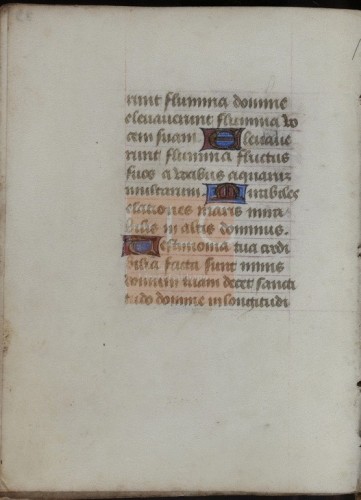 runt flumina domine
elevaverunt flumina vo
cem suam. Elevave
runt flumina fluctus
suos a vocibus aquarum
multarum. Mirabiles
elationes maris mira
bilis in altis dominus.
Testimonia tua credi
bilia facta sunt nimis
domum tuam decet sancti
tudo domine in longitudi